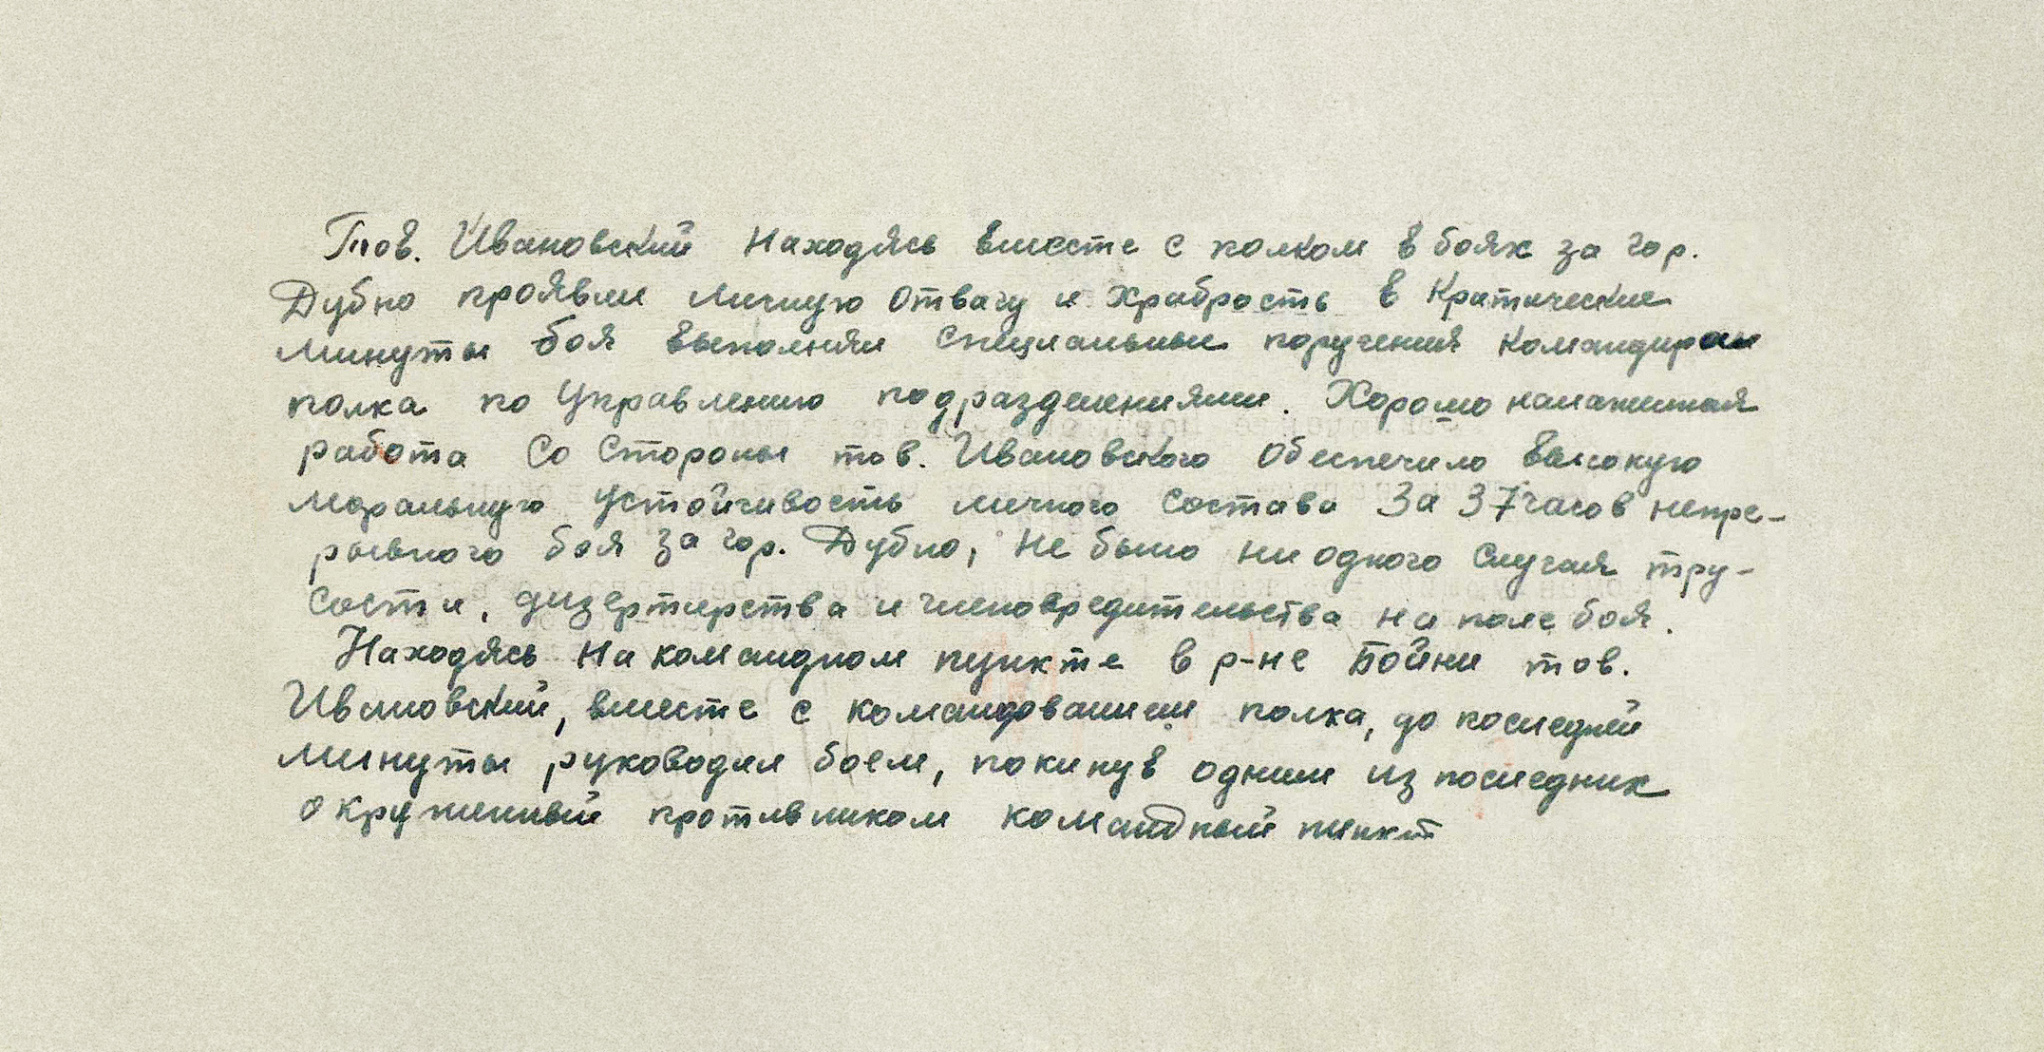 Тов. Ивановский находясь вместе с полком в боях за гор.
Дубно проявил личную отвагу и храбрость в критические
минуты боя выполнял специальные поручения командиром
полка по управлению подразделениями. Хорошо налаженная
работа со стороны тов. Ивановского обеспечило высокую
моральную устойчивость личного состава за 37 часов непре-
рывного боя за гор. Дубно, не было ни одного случая тру-
сости, дизертирства и членовредительства на поле боя.
Находясь на командном пункте в р-не Бойни тов.
Ивановский, вместе с командованием полка, до последней
минуты руководил боем, покинув одним из последних
окруженный противником командный пункт